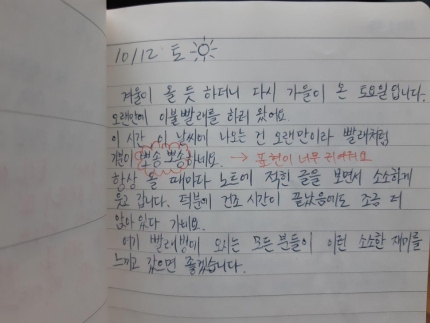 10/12. 토
겨울이 올 듯 하더니 다시 가을이 온 토요일 입니다.
오랜만에 이불빨래를 하러 왔어요.
이 시간 이 날씨에 나오는 건 오랜만이라 빨래처럼
기분이 뽀송뽀송하네요. → 표현이 너무 귀여워요
항상 올 때마다 노트에 적힌 글을 보면서 소소하게
웃고 갑니다. 덕분에 건조 시간이 끝났음에도 조금 더
앉아있다 가네요.
여기 빨래방에 오시는 모든 분들이 이런 소소한 재미를
느끼고 갔으면 좋겠습니다.